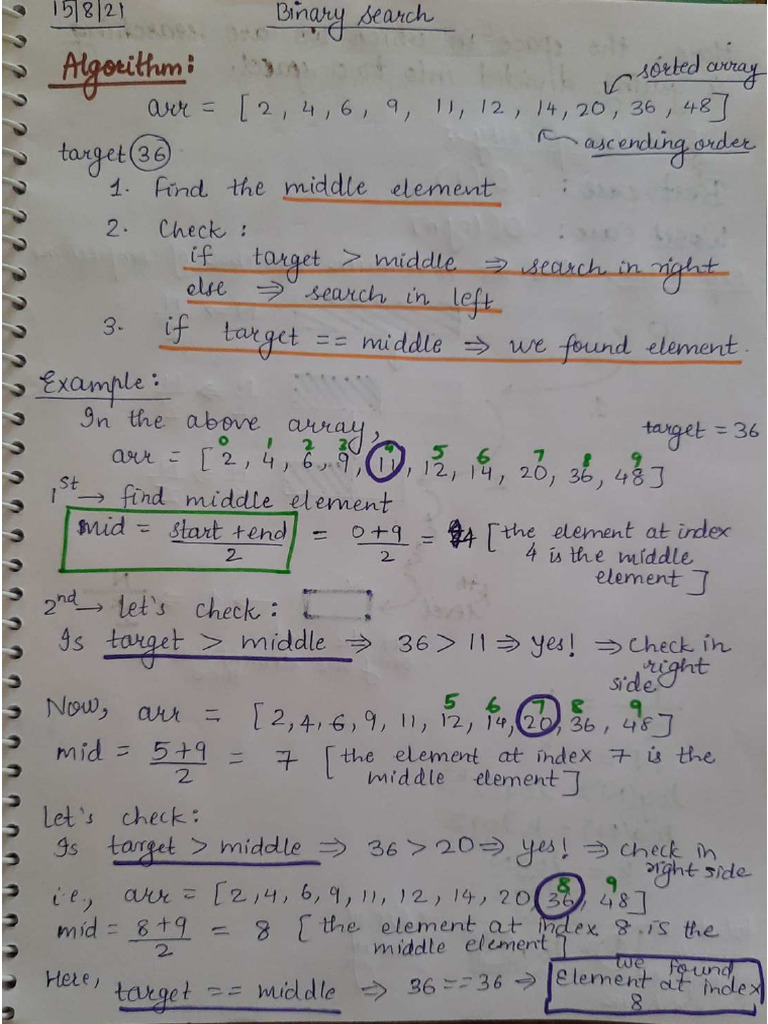 15/8/21 Binary search
Algorithm:
sorted array
arr = [2, 4, 6, 9, 11, 12, 14, 20, 36, 48]
ascending order
target 36
1. Find the middle element
2. Check:
if target > middle ⇒ search in right
else ⇒ search in left
3. if target == middle ⇒ we found element.
Example:
In the above array,
target = 36
0 1 2 3 4 5 6 7 8 9
arr = [2, 4, 6, 9, 11, 12, 14, 20, 36, 48]
1st → find middle element
mid = start + end / 2 = 0+9 / 2 = 4 [the element at index
4 is the middle
element]
2nd → let's check:
Is target > middle ⇒ 36 > 11 ⇒ yes! ⇒ Check in
right
side
5 6 7 8 9
Now, arr = [2, 4, 6, 9, 11, 12, 14, 20, 36, 48]
mid = 5+9 / 2 = 7 [the element at index 7 is the
middle element]
Let's check:
Is target > middle ⇒ 36 > 20 ⇒ yes! ⇒ check in
right side
8 9
i.e., arr = [2, 4, 6, 9, 11, 12, 14, 20, 36, 48]
mid = 8+9 / 2 = 8 [the element at index 8 is the
middle element]
Here, target == middle ⇒ 36 == 36 ⇒ we found
Element at index
8